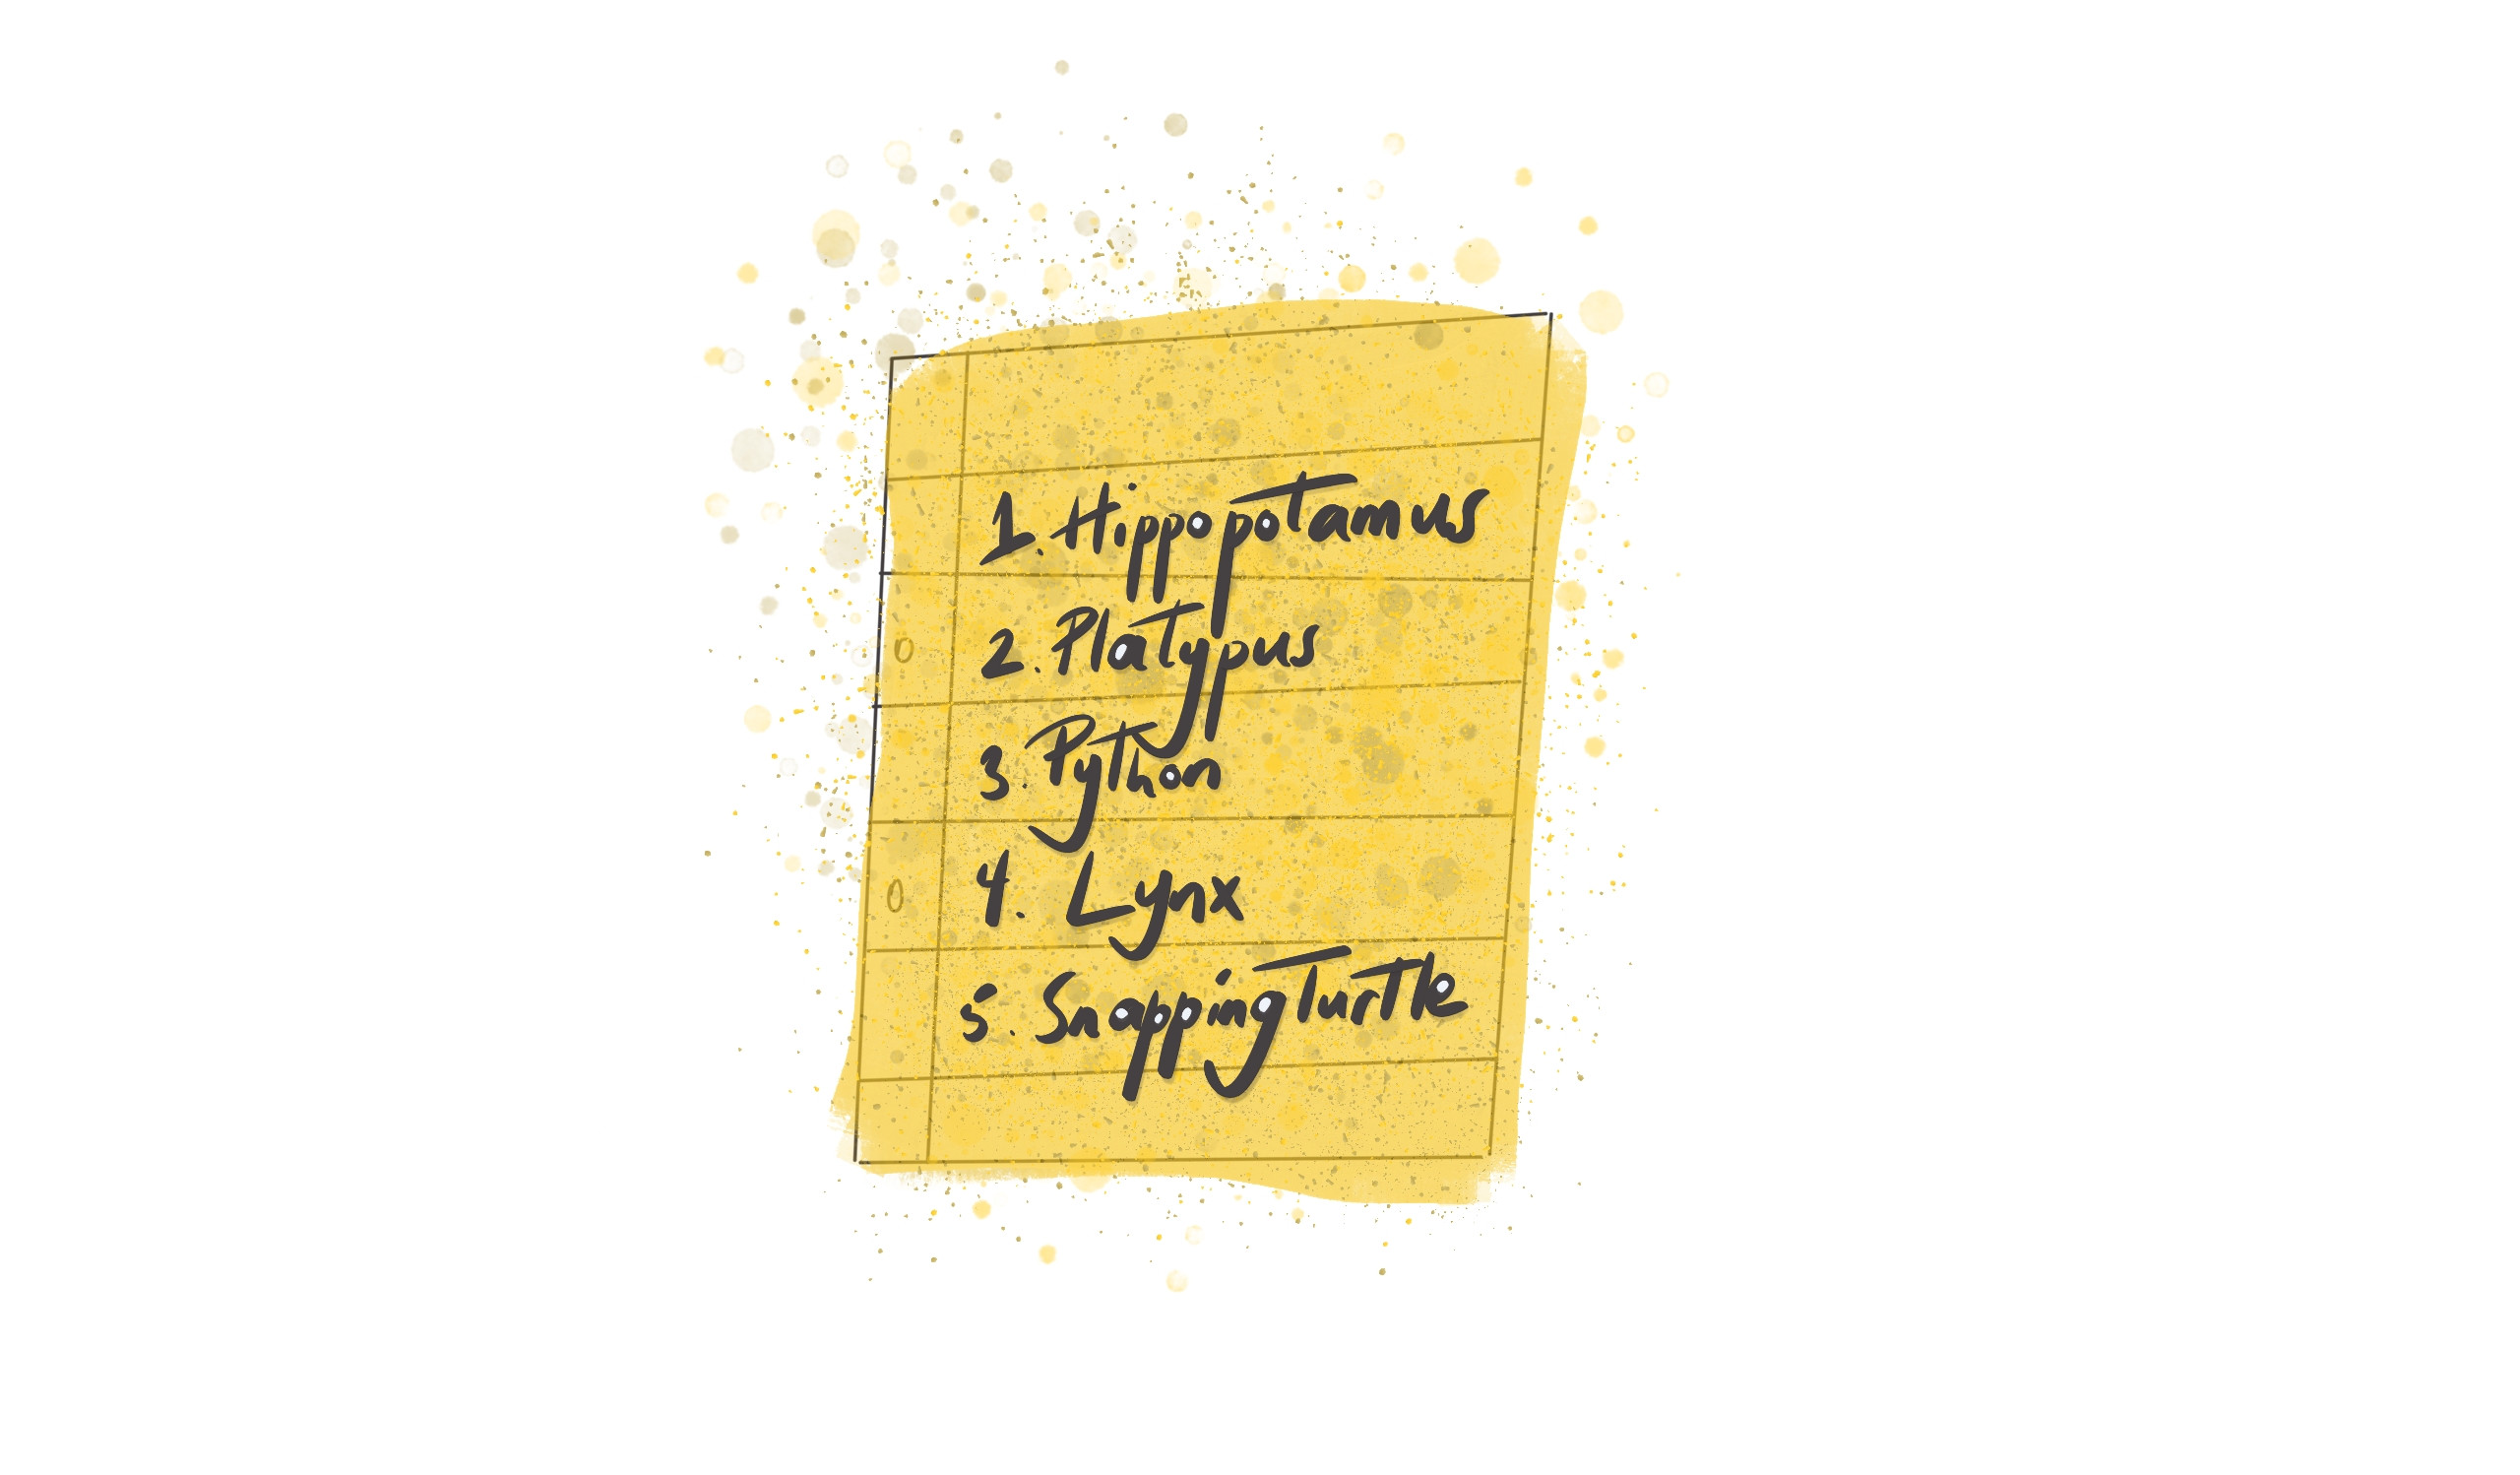 1. Hippopotamus
2. Platypus
3. Python
4. Lynx
5. Snapping Turtle